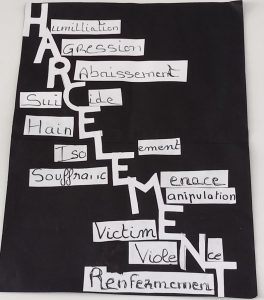 Humilliation
AGRESSION
RAbaissement
SuiCide
HainE
IsoLement
SouffrancE
Menace
Manipulation
VictimE
VioleNce
RenfermemenT